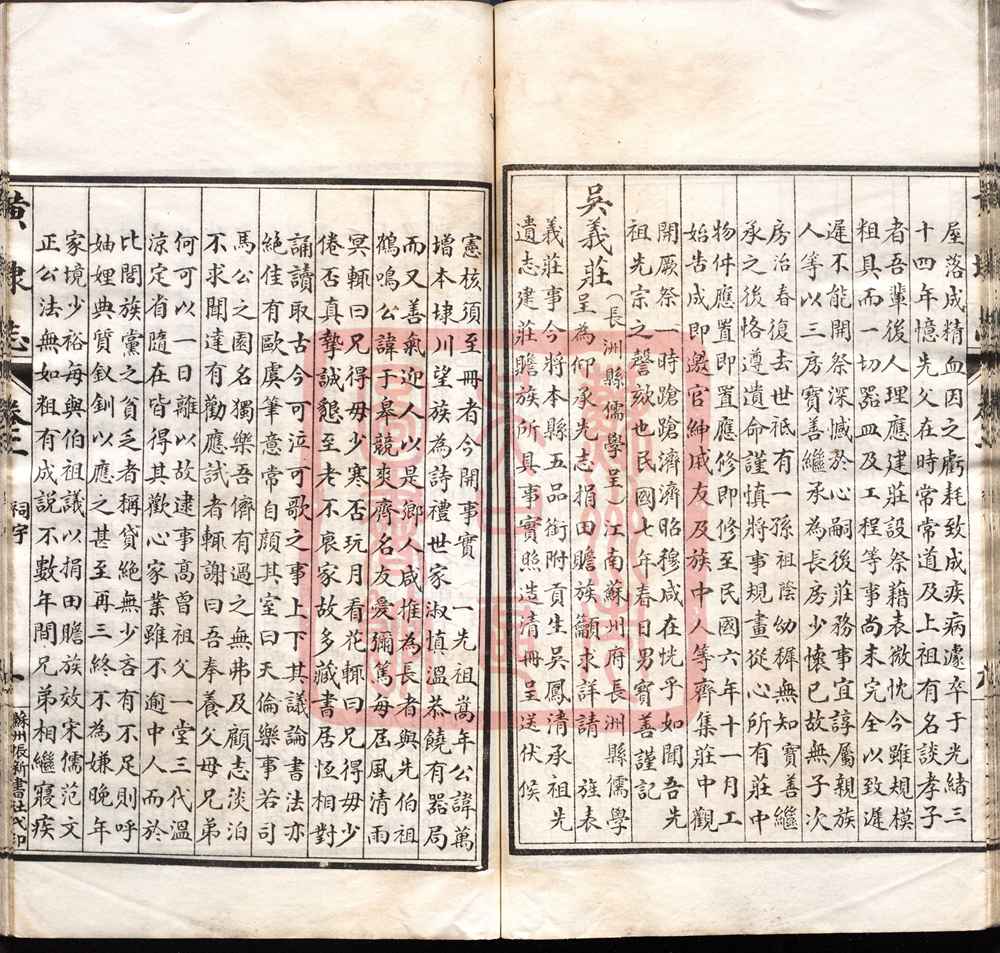 屋落成精血因之虧耗致成疾病濾卒于光緒三
十四年憶先父在時常常道及上祖有名談孝子
者吾輩後人理應建莊設祭藉表微忱今雖規模
粗具而一切器皿及工程等事尚未完全以致遲
遲不能開祭深憾於心嗣後莊務事宜諄屬親族
人等以三房寶善繼承為長房少懷已故無子次
房治春復去世祗有一孫祖蔭幼穉無知寶善繼
承之後恪遵遺命謹慎將事規畫從心所有莊中
物件應置即置應修即修至民國六年十一月工
始告成即邀官紳戚友及族中人等齊集莊中觀
開厥祭一時蹌蹌濟濟昭穆咸在恍乎如聞吾先
祖先宗之謦欬也民國七年春日男寶善謹記
吳義莊(長洲縣儒學呈江南蘇州府長洲縣儒學
呈為仰承先志捐田贍族籲求詳請 旌表
義莊事今將本縣五品銜附貢生吳鳳清承祖先
遺志建莊贍族所具事實照造清冊呈送伏候
憲核須至冊者今開事實 一先祖嵩年公諱萬
增本埭川望族為詩禮世家淑慎溫恭饒有器局
而又善氣迎人以是鄉人咸推為長者與先伯祖
鶴鳴公諱于皋競爽齊名友愛彌篤每屆風清雨
冥輒曰兄得毋少寒否玩月看花輒曰兄得毋少
倦否真摯誠懇至老不衰家故多藏書居恒相對
誦讀取古今可泣可歌之事上下其議論書法亦
絕佳有歐虞筆意常自顏其室曰天倫樂事若司
馬公之園名獨樂吾儕有過之無弗及顧志淡泊
不求聞達有勸應試者輒謝曰吾奉養父母兄弟
何可以一日離以故逮事高曾祖父一堂三代溫
涼定省隨在皆得其歡心家業雖不逾中人而於
比閭族黨之貧乏者稱貸絕無少吝有不足則呼
妯娌典質釵釧以應之甚至再三終不為嫌晚年
家境少裕每與伯祖議以捐田贍族效宋儒范文
正公法無如粗有成說不數年間兄弟相繼寢疾
黃埭志 卷三 祠宇
蘇州振新書社代印